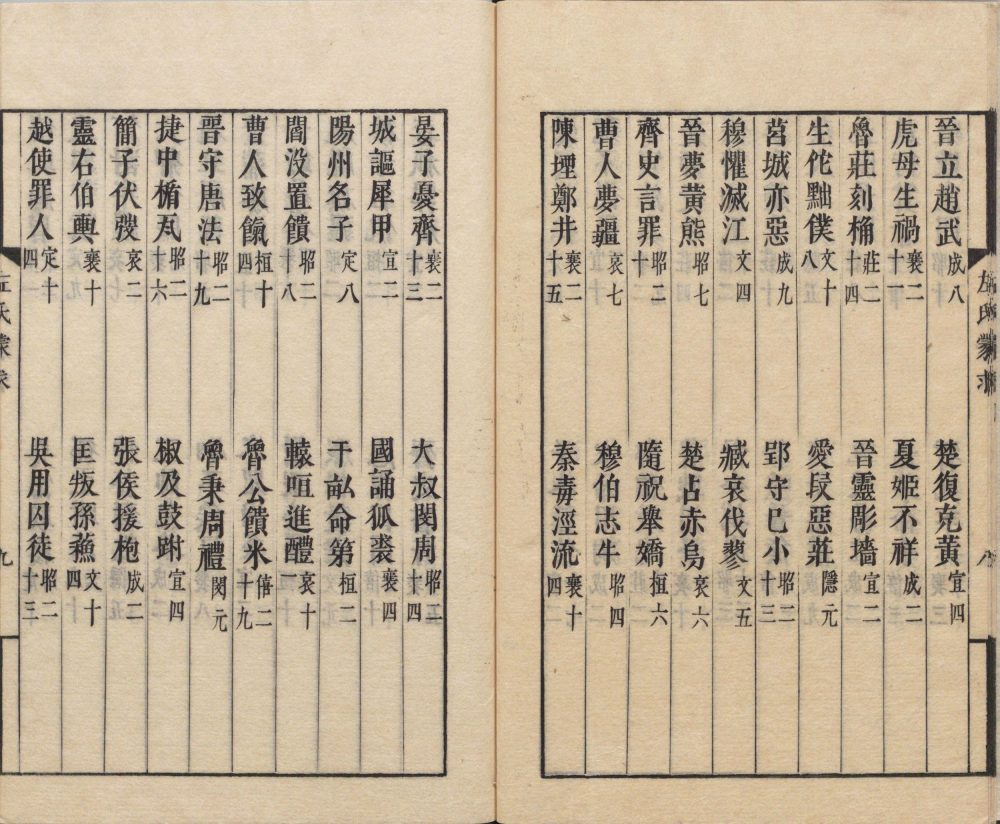 左氏蒙求 八
晉立趙武 成八 楚復克黃 宣四
虎母生禍 襄二十一 夏姬不祥 成二
魯莊刻桷 莊二十四 晉靈彫墻 宣二
生佗黜僕 文十八 愛段惡莊 隱元
莒城亦惡 成九 郢守巳小 昭二十三
穆懼滅江 文四 臧哀伐蓼 文五
晉夢黃熊 昭七 楚占赤烏 哀六
齊史言罪 昭二十 隨祝舉嬌 桓六
曹人夢疆 哀七 穆伯志牛 昭四
陳堙鄭井 襄二十五 秦毒涇流 襄十四
晏子憂齊 襄二十三 大叔閔周 昭二十四
城謳犀甲 宣二 國誦狐裘 襄四
陽州名子 定八 千畝命第 桓二
閻沒置饋 昭二十八 轅咺進醴 哀十一
曹人致餼 桓十四 魯公饋米 僖二十九
晉守唐法 昭二十九 魯秉周禮 閔元
捷中楯瓦 昭二十六 椒及鼓跗 宣四
簡子伏弢 哀二 張侯援枹 成二
靈右伯輿 襄十 匡叛孫蘓 文十四
越使罪人 定十四 吳用囚徒 昭二十三
左氏蒙求 九